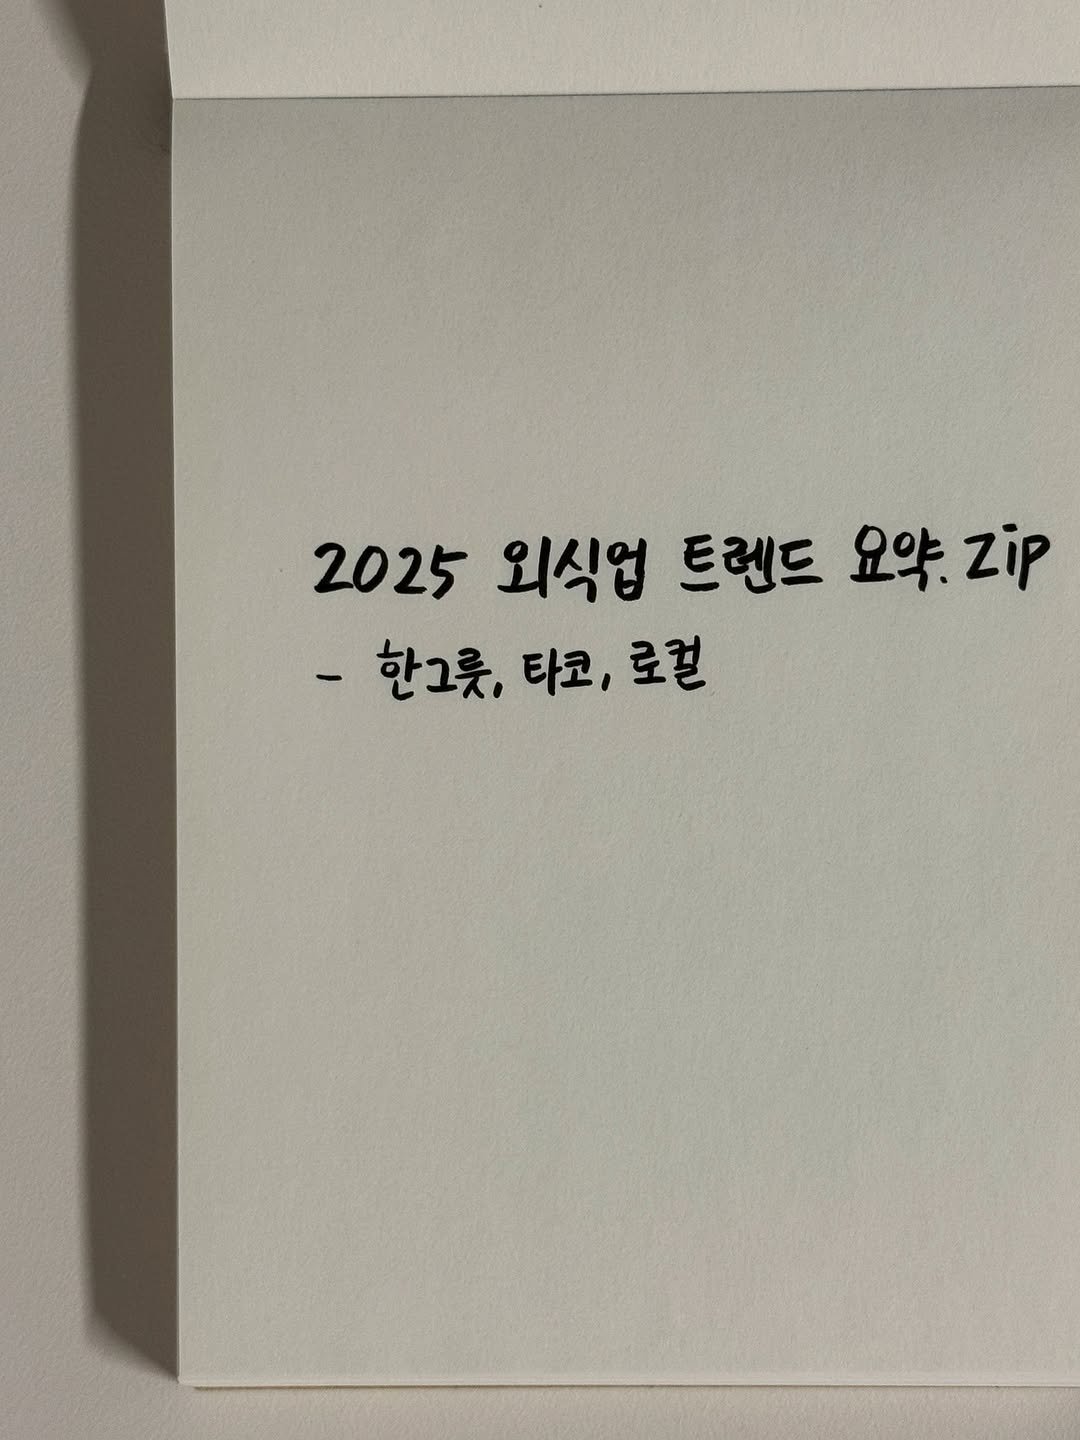 2025 외식업 트렌드 요약.zip
- 한그릇, 타코, 로컬